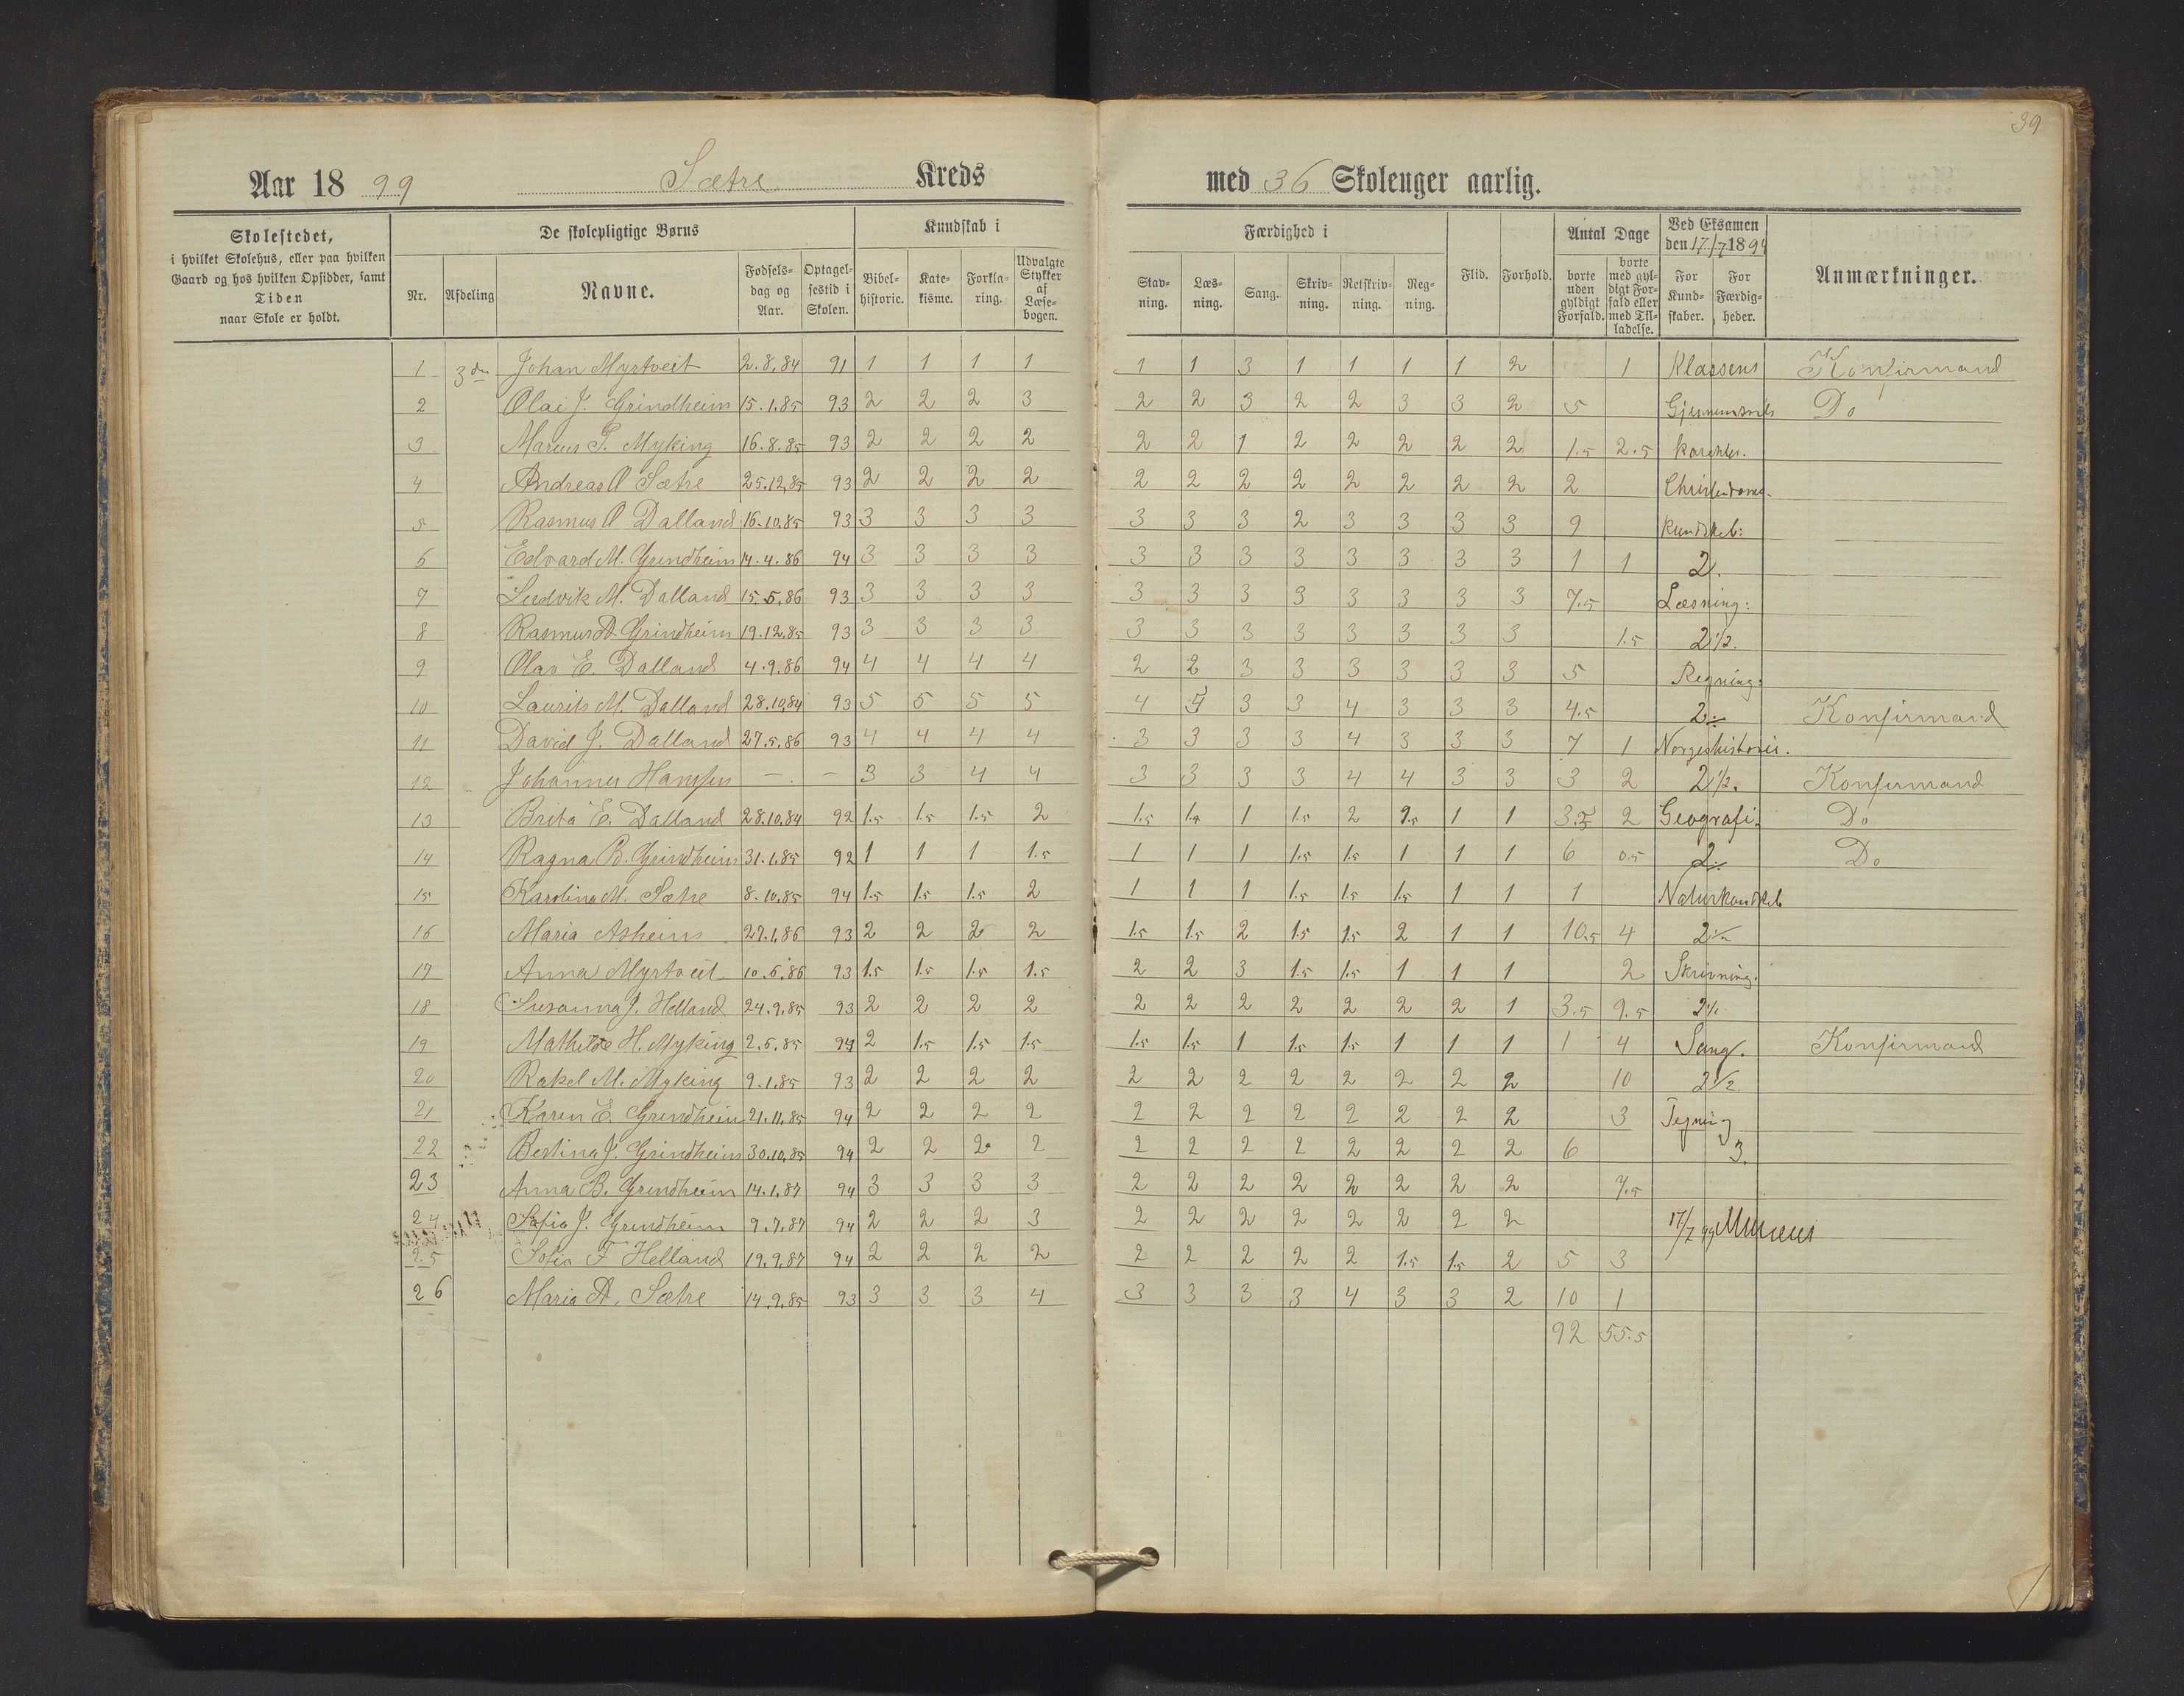 39
Aar 1899 Sætre Kreds med 36 Skoleuger aarlig.
Skolestedet, i hvilket Skolehus, eller paa hvilken Gaard og hos hvilken Opsidder, samt Tiden naar Skole er holdt.
De skolepligtige Børns
Nr. Afdeling Navne. Fødselsdag og Aar. Optagelsestid i Skolen.
Kundskab i
Bibelhistorie. Katekisme. Forklaring. Udvalgte Stykker af Læsebogen.
Færdighed i
Stavning. Læsning. Sang. Skrivning. Retskrivning. Regning.
Flid. Forhold.
Antal Dage
borte uden gyldigt Forfald. borte med gyldigt Forfald eller med Tilladelse.
Ved Eksamen den 17/7 1899
For Kundskaber. For Færdigheder.
Anmærkninger.
1 3die Johan Myrtveit 2.8.84 91 1 1 1 1 1 1 3 1 1 1 1 2 1 Klassens Konfirmand
2 Olai J. Grindheim 15.1.85 93 2 2 2 3 2 2 3 2 2 3 3 2 5 Gjennemsnits Do
3 Marius T. Myking 16.8.85 93 2 2 2 2 2 2 1 2 2 2 2 2 1.5 2.5 karakter.
4 Andreas O Sætre 25.12.85 93 2 2 2 2 2 2 2 2 2 2 2 2 2 Christendoms-
5 Rasmus O Dalland 16.10.85 93 3 3 3 3 3 3 3 2 3 3 3 3 9 kundskab:
6 Edvard M. Grindheim 14.4.86 94 3 3 3 3 3 3 3 3 3 3 3 3 1 1 2.
7 Ludvik M. Dalland 15.5.86 93 3 3 3 3 3 3 3 3 3 3 3 3 7.5 Læsning:
8 Rasmus A. Grindheim 19.12.85 93 3 3 3 3 3 3 3 3 3 3 3 3 1.5 2 1/2.
9 Olav E. Dalland 4.9.86 94 4 4 4 4 2 2 3 3 3 3 3 3 5 Regning:
10 Laurits M. Dalland 28.10.84 93 5 5 5 5 4 4 3 3 4 3 3 3 4.5 2 Konfirmand
11 David J. Dalland 27.5.86 93 4 4 4 4 3 3 3 3 4 3 3 3 7 1 Norgeshistorie.
12 Johannes Hansen — — 3 3 4 4 3 3 3 3 4 4 3 3 3 2 2 1/2. Konfirmand
13 Brita E. Dalland 28.10.84 92 1.5 1.5 1.5 2 1.5 1.5 1 1.5 2 1.5 1 1 3.5 2 Geografi: Do
14 Ragna B. Grindheim 31.1.85 92 1 1 1 1.5 1 1 1 1.5 1.5 1 1 1 6 0.5 2 Do
15 Karolina M. Sætre 8.10.85 94 1.5 1.5 1.5 2 1 1 1 1.5 1.5 1.5 1 1 1 Naturkundskab
16 Maria Asheim 27.1.86 93 2 2 2 2 1.5 1.5 2 1.5 1.5 2 1 1 10.5 4 2 1/2
17 Anna Myrtveit 10.5.86 93 1.5 1.5 1.5 1.5 2 2 3 1.5 1.5 1 1 1 2 Skrivning.
18 Susanna J. Helland 24.9.85 93 2 2 2 2 2 2 2 2 2 2 2 1 3.5 9.5
19 Mathilde H. Myking 2.5.85 94 2 1.5 1.5 1.5 1.5 1.5 1 1.5 1.5 1 1 1 1 4 Sang. Konfirmand
20 Rakel M. Myking 9.1.85 93 2 2 2 2 2 2 2 2 2 2 2 2 10 2 1/2
21 Karen E. Grindheim 21.11.85 94 2 2 2 2 2 2 2 2 2 2 2 2 3 Tegning
22 Bertina J. Grindheim 30.10.85 94 2 2 2 2 2 2 2 2 2 2 2 2 6 3.
23 Anna B. Grindheim 14.1.87 94 3 3 3 3 2 2 2 2 2 2 2 2 7.5
24 Sofia J. Grindheim 9.7.87 94 2 2 2 3 2 2 2 2 2 2 2 2 17/7 99
25 Sofia F Helland 19.9.87 94 2 2 2 2 2 2 2 2 2 1.5 1.5 2 5 3
26 Maria A. Sætre 14.9.85 93 3 3 3 4 3 3 3 3 4 3 3 2 10 1
92 55.5